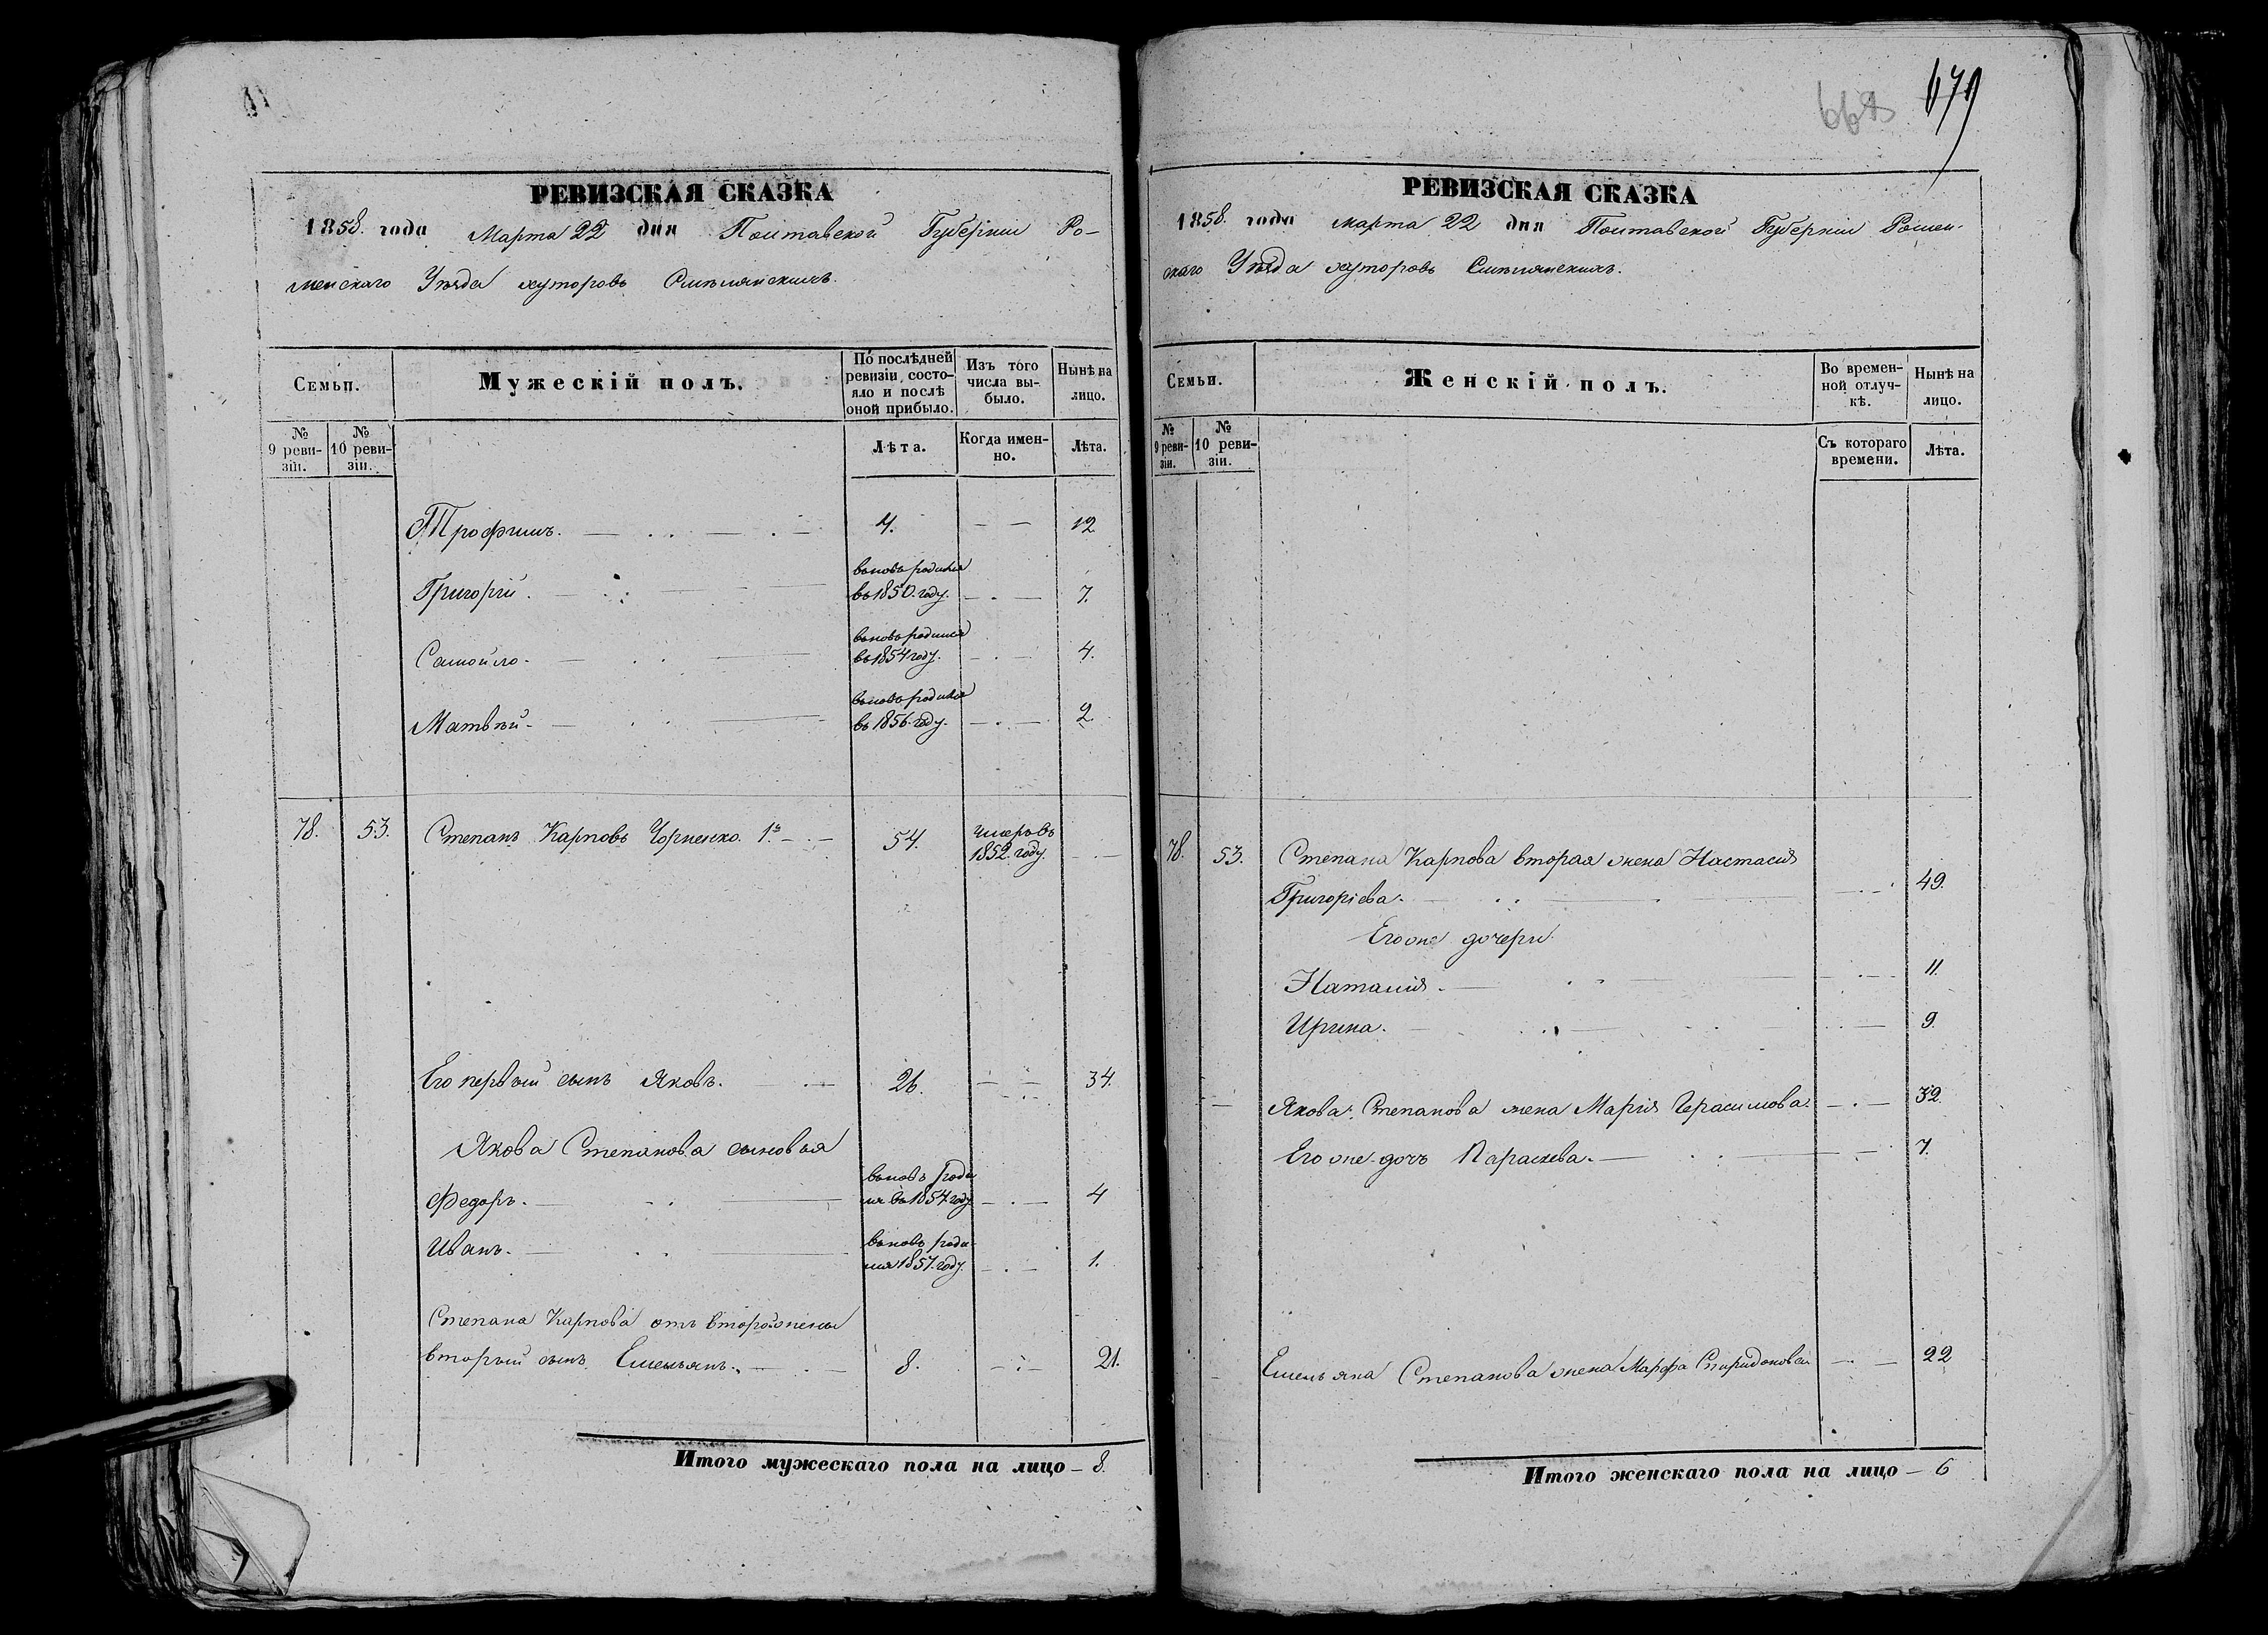 РЕВИЗСКАЯ СКАЗКА
1858. года Марта 22 дня Полтавской Губерніи Ро-
менскаго Уѣзда хуторовъ Смѣлянскихъ.
Семьи.
Мужескій полъ.
По послѣдней ревизіи состо-
яло и послѣ оной прибыло.
Изъ того числа вы-
было.
Нынѣ на лицо.
№ 9 реви-
зіи.
№ 10 реви-
зіи.
Лѣта.
Когда имен-
но.
Лѣта.
Трофимъ. 4. 12
Григорій. вновь родился
въ 1850. году. 7.
Самойло. вновь родился
въ 1854 году. 4.
Матвѣй. вновь родился
въ 1856. году. 2.
78. 53. Степанъ Карповъ Чорненко. 1й 54. умеръ въ
1852. году.
Его первый сынъ Яковъ. 26. 34.
Якова Степанова сыновья
Федоръ. вновь роди
лся въ 1854 году. 4
Иванъ. вновь роди-
лся 1857. году. 1.
Степана Карпова отъ второй жены
вторый сынъ Емельянъ. 8. 21.
Итого мужескаго пола на лицо – 8.
679
РЕВИЗСКАЯ СКАЗКА
1858. года марта 22 дня Полтавской Губерніи Ромен-
скаго Уѣзда хуторовъ Смѣлянскихъ.
Семьи.
Женскій полъ.
Во времен-
ной отлуч-
кѣ.
Нынѣ на лицо.
№ 9 реви-
зіи.
№ 10 реви-
зіи.
Съ котораго времени.
Лѣта.
78. 53. Степана Карпова вторая жена Настасія
Григоріева. 49.
Его же дочери
Наталія. 11.
Ирина. 9.
Якова Степанова жена Марія Герасимова. 32.
Его же дочь Параскева. 7.
Емельяна Степанова жена Марфа Спиридонова 22
Итого женскаго пола на лицо – 6